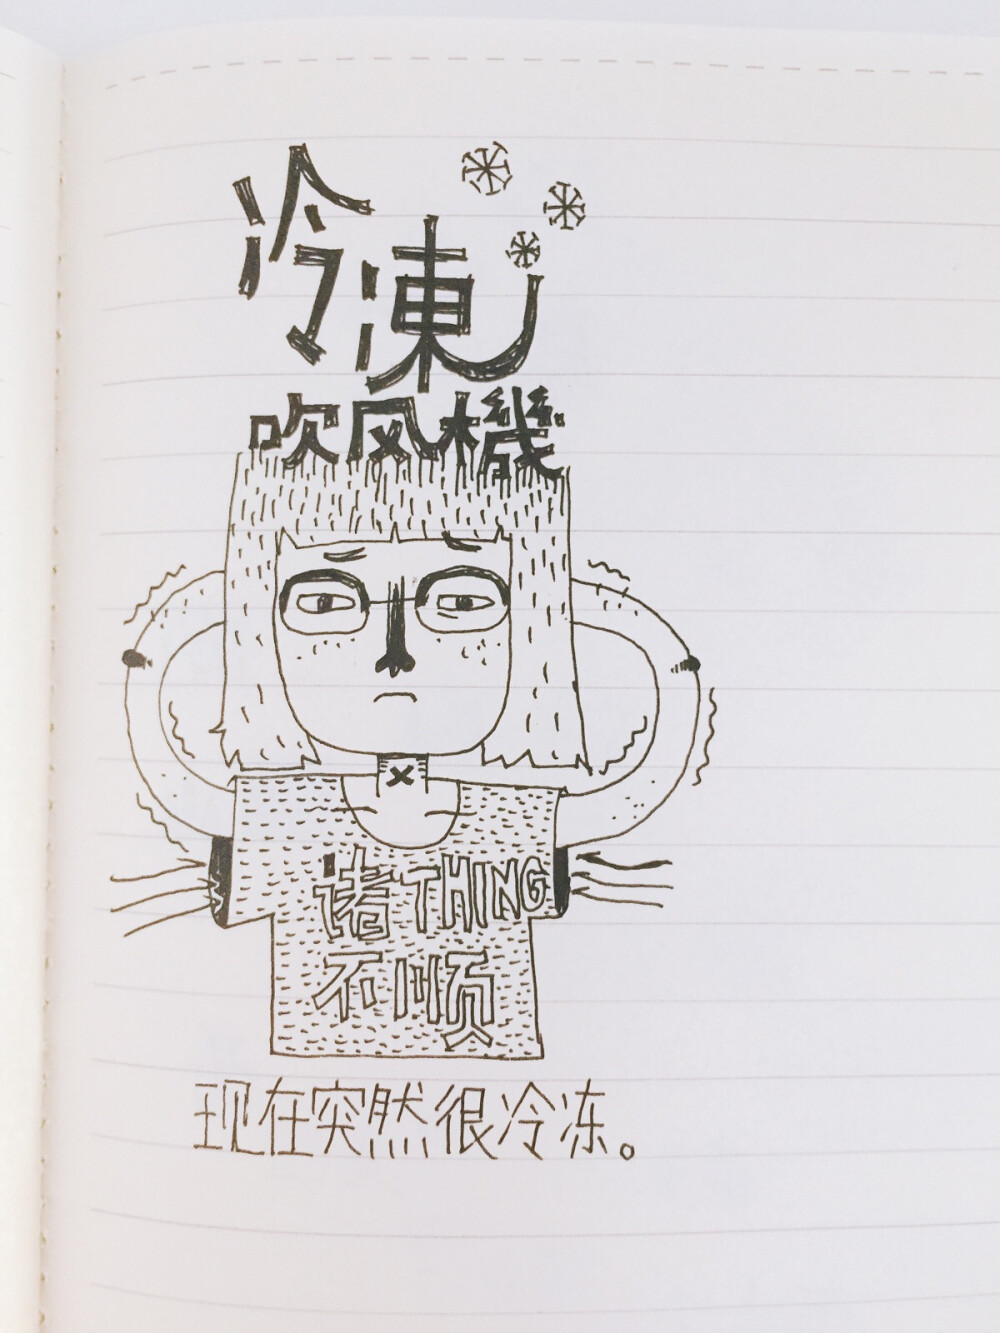 冷凍
吹风機
诸THING
不顺
现在突然很冷冻。